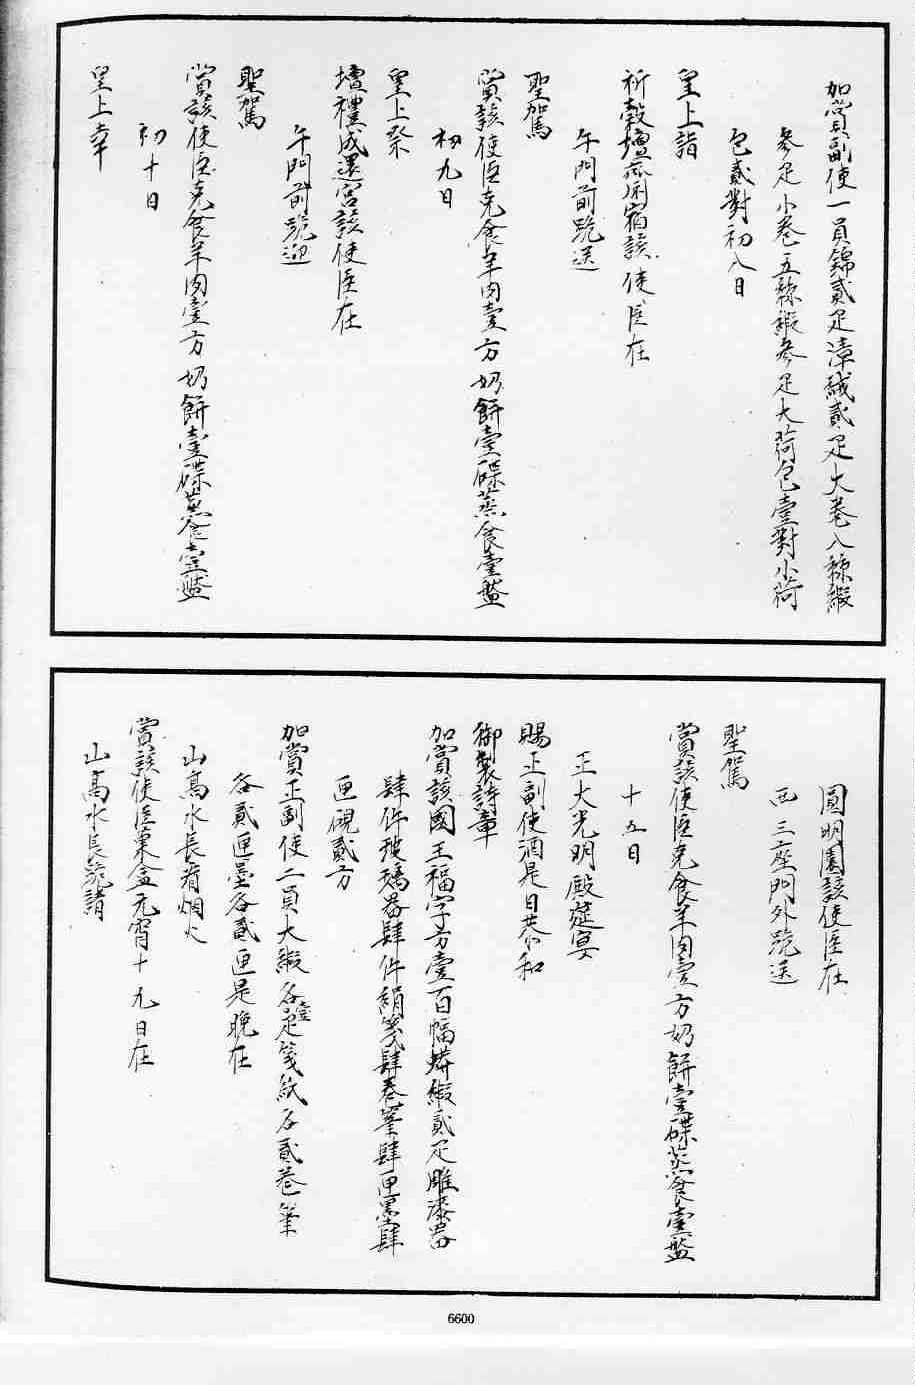 加賞副使一員錦貳疋漳絨貳疋大卷八絲緞
參疋小卷五絲緞參疋大荷包壹對小荷
包貳對初八日
皇上詣
祈穀壇齋宿該使臣在
午門前跪送
聖駕
賞該使臣克食羊肉壹方奶餅壹碟蒸食壹盤
初九日
皇上祭
壇禮成還宮該使臣在
午門前跪迎
聖駕
賞該使臣克食羊肉壹方奶餅壹碟蒸食壹盤
初十日
皇上幸
圓明園該使臣在
西三座門外跪送
聖駕
賞該使臣克食羊肉壹方奶餅壹碟蒸食壹盤
十五日
正大光明殿筵宴
賜正副使酒是日恭和
御製詩章
加賞該國王福字方壹百幅蟒緞貳疋雕漆器
肆件玻璃器肆件絹箋肆卷筆肆匣墨肆
匣硯貳方
加賞正副使二員大緞各壹疋箋紙各貳卷筆
各貳匣墨各貳匣是晚在
山高水長看烟火
賞該使臣菓盒元宵十九日在
山高水長跪請
6600